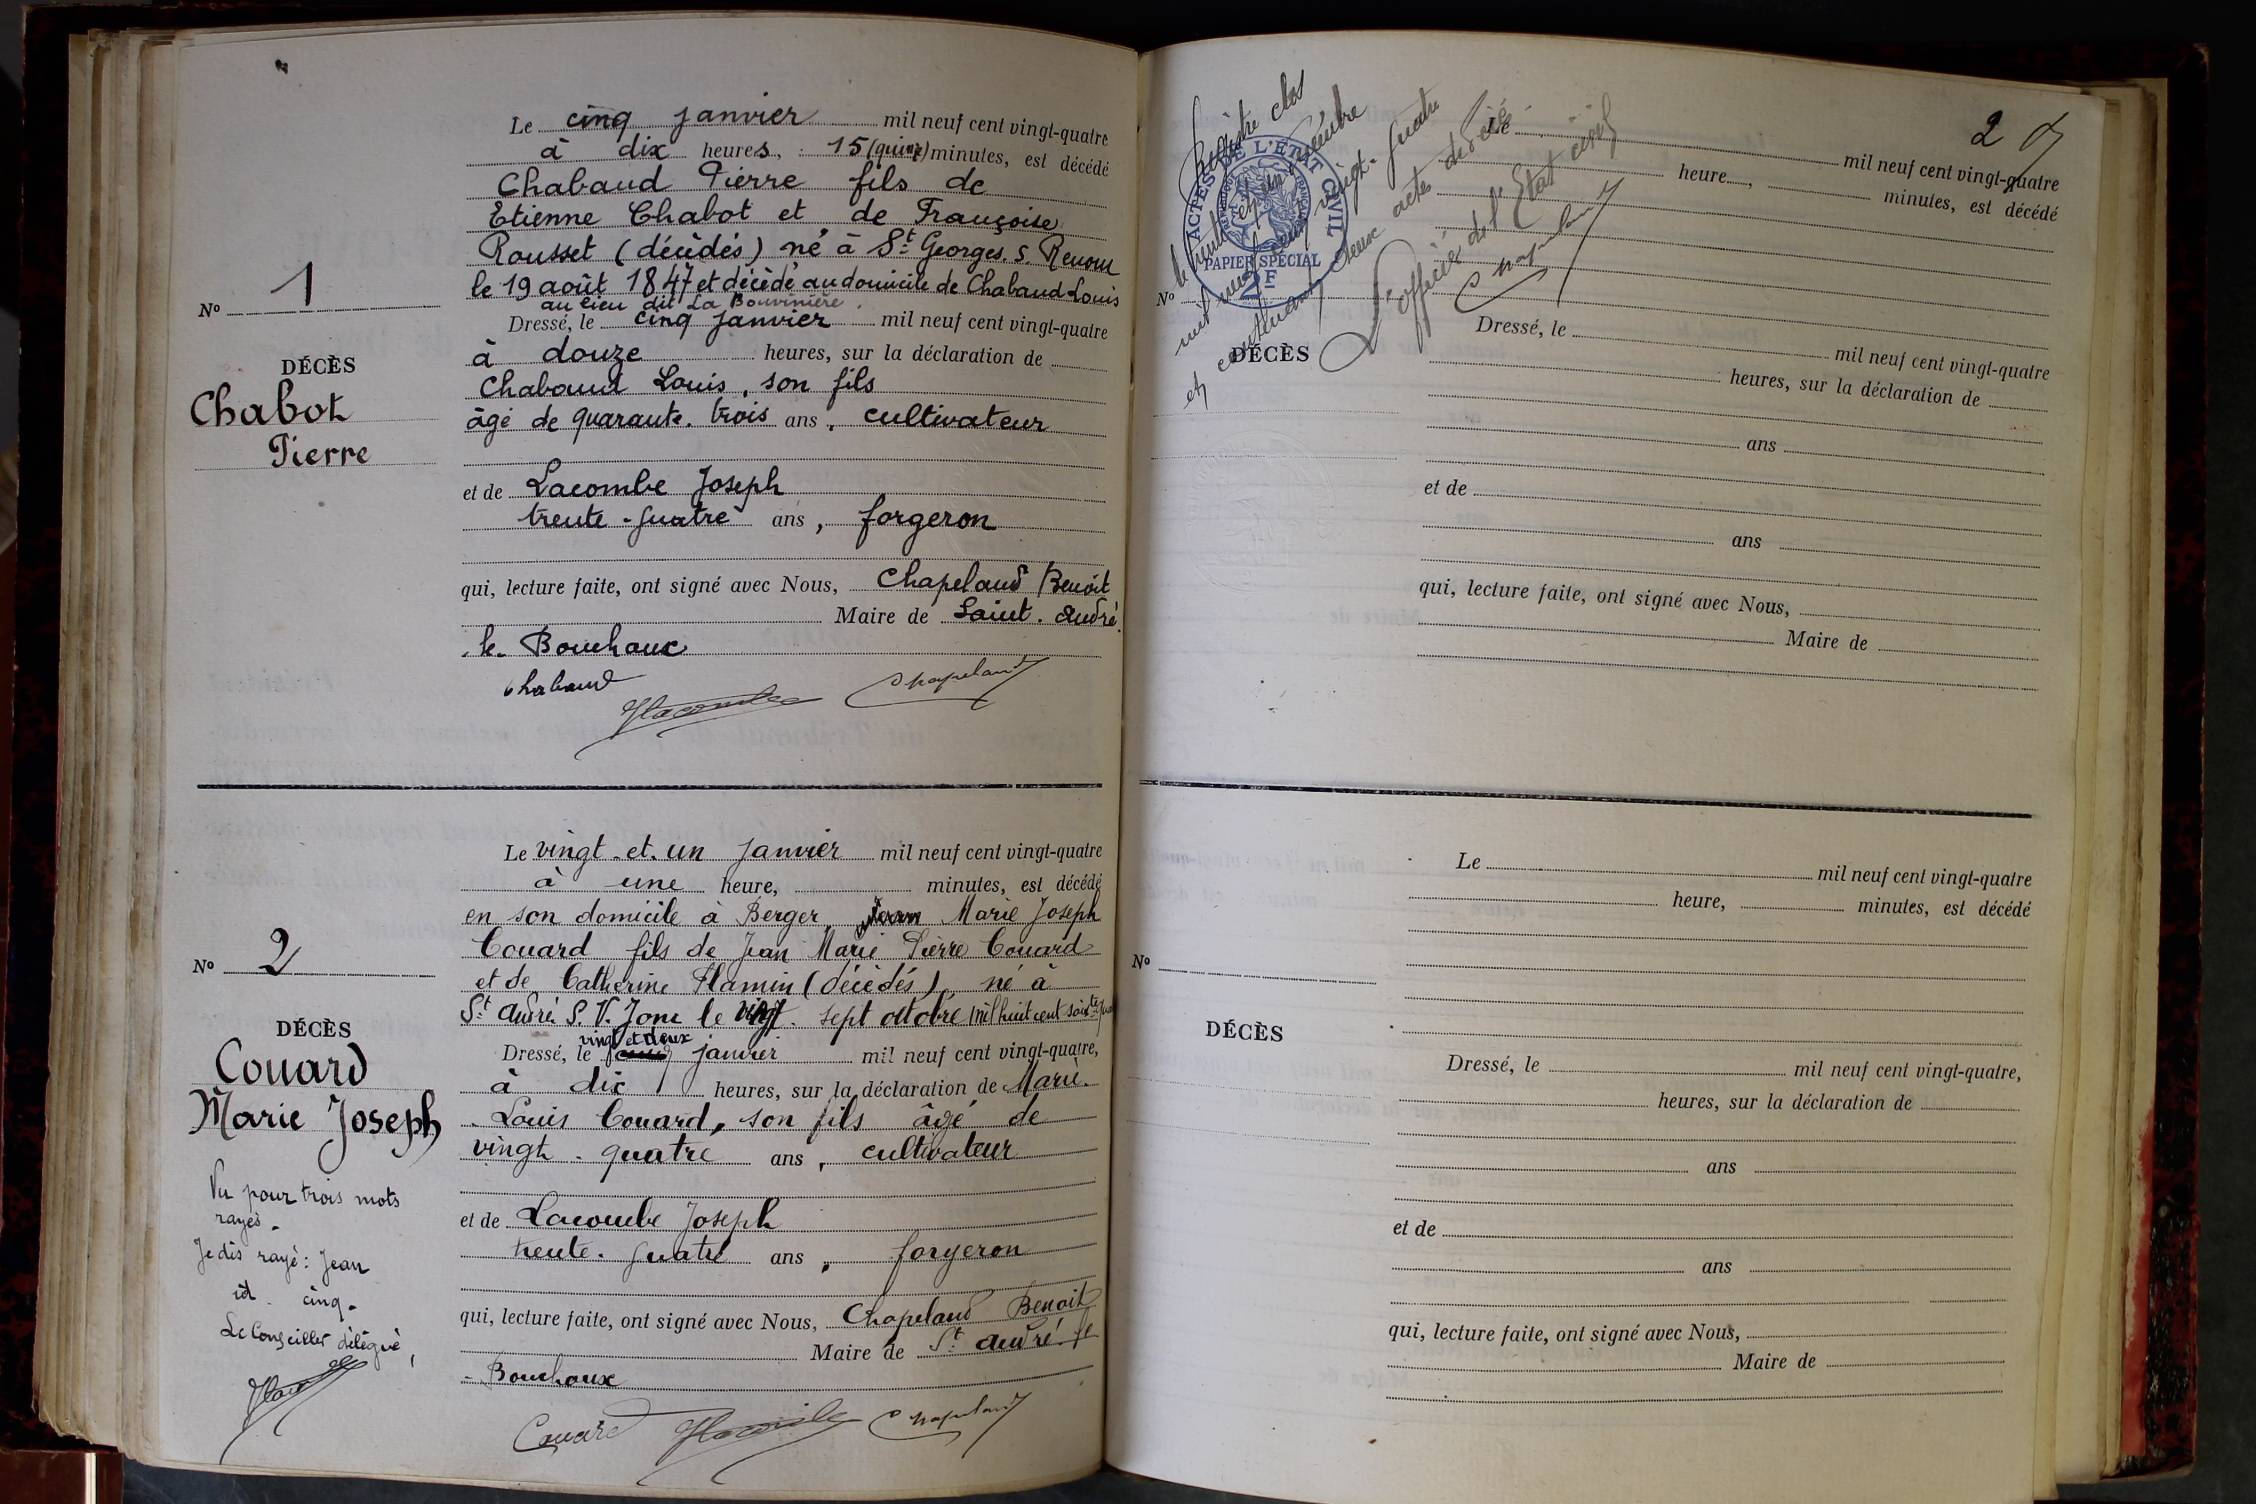 Le cinq janvier mil neuf cent vingt-quatre
à dix heures, 15 (quinze) minutes, est décédé
Chabaud Pierre fils de
Etienne Chabot et de Françoise
Rousset (décédés) né à St Georges. S. Renom
le 19 août 1847 et décédé au domicile de Chabaud Louis
au lieu dit La Bouvinière.
No 1
Dressé, le cinq janvier mil neuf cent vingt-quatre
à douze heures, sur la déclaration de
DÉCÈS
Chabaud Louis, son fils
Chabot
âgé de quarante. trois ans, cultivateur
Pierre
et de Lacombe Joseph
trente-quatre ans, forgeron
qui, lecture faite, ont signé avec Nous, Chapelaud Benoit
Maire de Saint. André.
.le. Bouchaux
Chabaud
JLacombe Chapelaud
Le vingt-et-un janvier mil neuf cent vingt-quatre
à une heure, minutes, est décédé
en son domicile à Berger Jean Marie Joseph
Couard fils de Jean Marie Pierre Couard
No 2
et de Catherine Flamin (décédés) né à
St André. S. V. Jonc le vingt. sept octobre mil huit cent
DÉCÈS
vingt et deux
Dressé, le cinq janvier mil neuf cent vingt-quatre,
Couard
à dix heures, sur la déclaration de Marie.
Marie Joseph
. Louis Couard, son fils âgé de
vingt-quatre ans, cultivateur
Vu pour trois mots
rayés.
et de Lacombe Joseph
Je dis rayé: Jean
trente-quatre ans, forgeron
id. cinq.
qui, lecture faite, ont signé avec Nous, Chapelaud Benoit
Le Conseiller délégué,
Maire de St André le
- Bouchaux
Couard JLacombe Chapelaud
2
Registre clos
le vingt et un décembre
mil neuf cent vingt-quatre
et contenant deux actes décès.
L'officier de l'Etat civil
Chapelaud
ACTES DE L'ÉTAT CIVIL
RÉPUBLIQUE FRANÇAISE
PAPIER SPÉCIAL
2F
Le mil neuf cent vingt-quatre
heure, minutes, est décédé
No
Dressé, le mil neuf cent vingt-quatre
DÉCÈS
heures, sur la déclaration de
ans
et de
ans
qui, lecture faite, ont signé avec Nous,
Maire de
Le mil neuf cent vingt-quatre
heure, minutes, est décédé
No
DÉCÈS
Dressé, le mil neuf cent vingt-quatre,
heures, sur la déclaration de
ans
et de
ans
qui, lecture faite, ont signé avec Nous,
Maire de